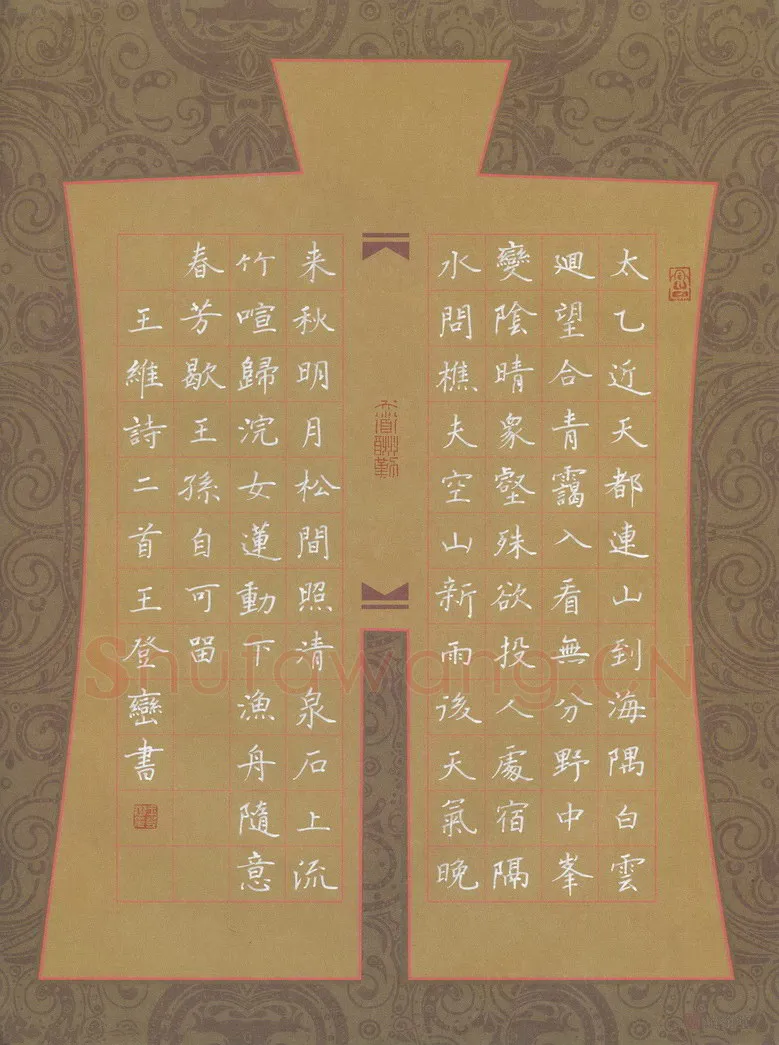 太乙近天都連山到海隅白雲
廻望合青靄入看無分野中峯
變陰晴衆壑殊欲投人處宿隔
水問樵夫空山新雨後天氣晚
来秋明月松間照清泉石上流
竹喧歸浣女蓮動下漁舟隨意
春芳歇王孫自可留
王維詩二首王登巒書
天道酬勤
Shufawang.CN